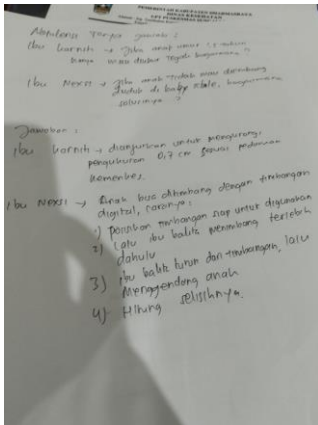 PEMERINTAH KABUPATEN DHARMASRAYA
DINAS KESEHATAN
UPT PUSKESMAS
Notulensi Tanya jawab :
Ibu Kornih → Jika anak umur
hanya mau diukur tegak bagaimana?
Ibu Nexsi → Jika anak tidak mau ditimbang
duduk di baby scale, bagaimana
solusinya ?
Jawaban :
Ibu Kornih → dianjurkan untuk mengurangi
pengukuran 0,7 cm sesuai pedoman
kemenkes
Ibu Nexsi → Anak bisa ditimbang dengan timbangan
digital, caranya :
1) pastikan timbangan siap untuk digunakan
2) Lalu ibu balita menimbang terlebih
dahulu
3) Ibu balita turun dari timbangan, lalu
Menggendong anak
4) Hitung selisihnya.